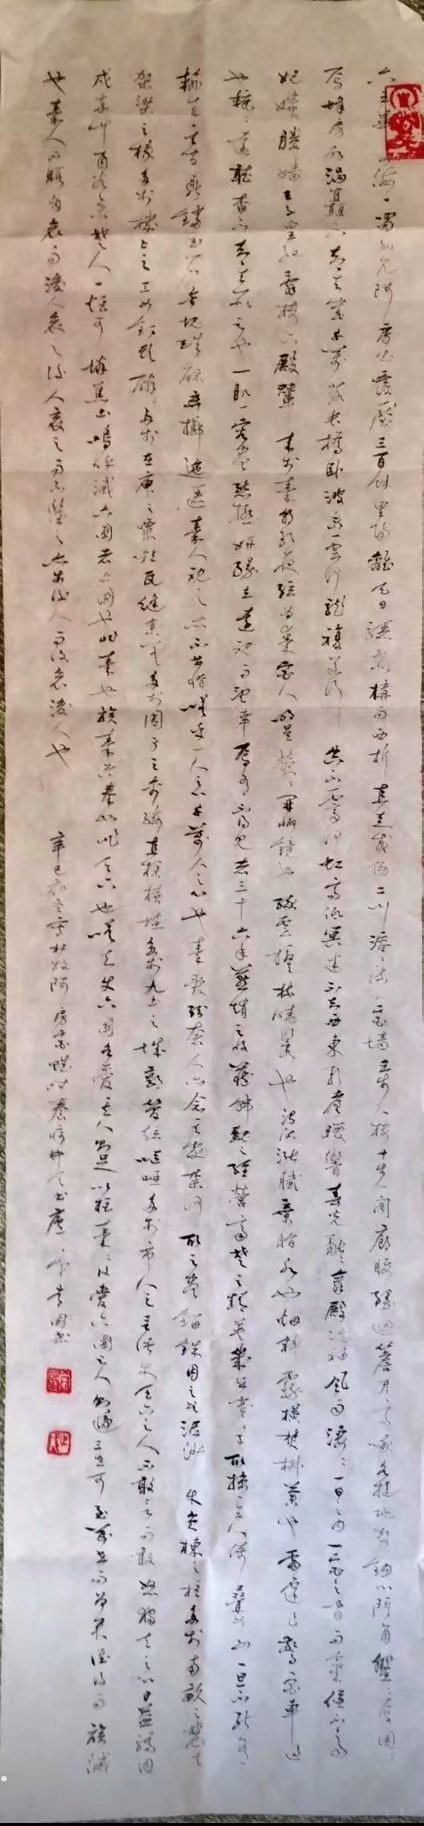 六王畢 一 蜀山兀阿房出覆壓三百餘里隔離天日驪山北構而西折直走咸陽二川溶溶流入宮墻五步一樓十步一閣廊腰縵迴簷牙高啄各抱地勢鈎心鬥角盤盤焉囷囷
焉蜂房水渦矗不知其幾千萬落長橋臥波未雲何龍複道行空不霽何虹高低冥迷不知西東歌臺暖響春光融融舞殿冷袖風雨淒淒一日之內一宮之間而氣候不齊
妃嬪媵嬙王子皇孫辭樓下殿輦來於秦朝歌夜弦為秦宮人明星熒熒開妝鏡也綠雲擾擾梳曉鬟也渭流漲膩棄脂水也烟斜霧橫焚椒蘭也雷霆乍驚宮車過
也轆轆遠聽杳不知其所之也一肌一容盡態極妍縵立遠視而望幸焉有不見者三十六年燕趙之收藏韓魏之經營齊楚之精英幾世幾年取掠其人倚疊如山一旦不能有
輸來其間鼎鐺玉石金塊珠礫棄擲邐迤秦人視之亦不甚惜嗟乎一人之心千萬人之心也秦愛紛奢人亦念其家奈何取之盡錙銖用之如泥沙使負棟之柱多於南畝之農夫
架梁之椽多於機上之工女釘頭磷磷多於在庾之粟粒瓦縫參差多於周身之帛縷直欄橫檻多於九土之城郭管弦嘔啞多於市人之言語使天下之人不敢言而敢怒獨夫之心日益驕固
戍卒叫函谷舉楚人一炬可憐焦土嗚呼滅六國者六國也非秦也族秦者秦也非天下也嗟夫使六國各愛其人則足以拒秦秦復愛六國之人則遞三世可至萬世而為君誰得而族滅
也秦人不暇自哀而後人哀之後人哀之而不鑒之亦使後人而復哀後人也 辛巳 書杜牧阿房宮賦